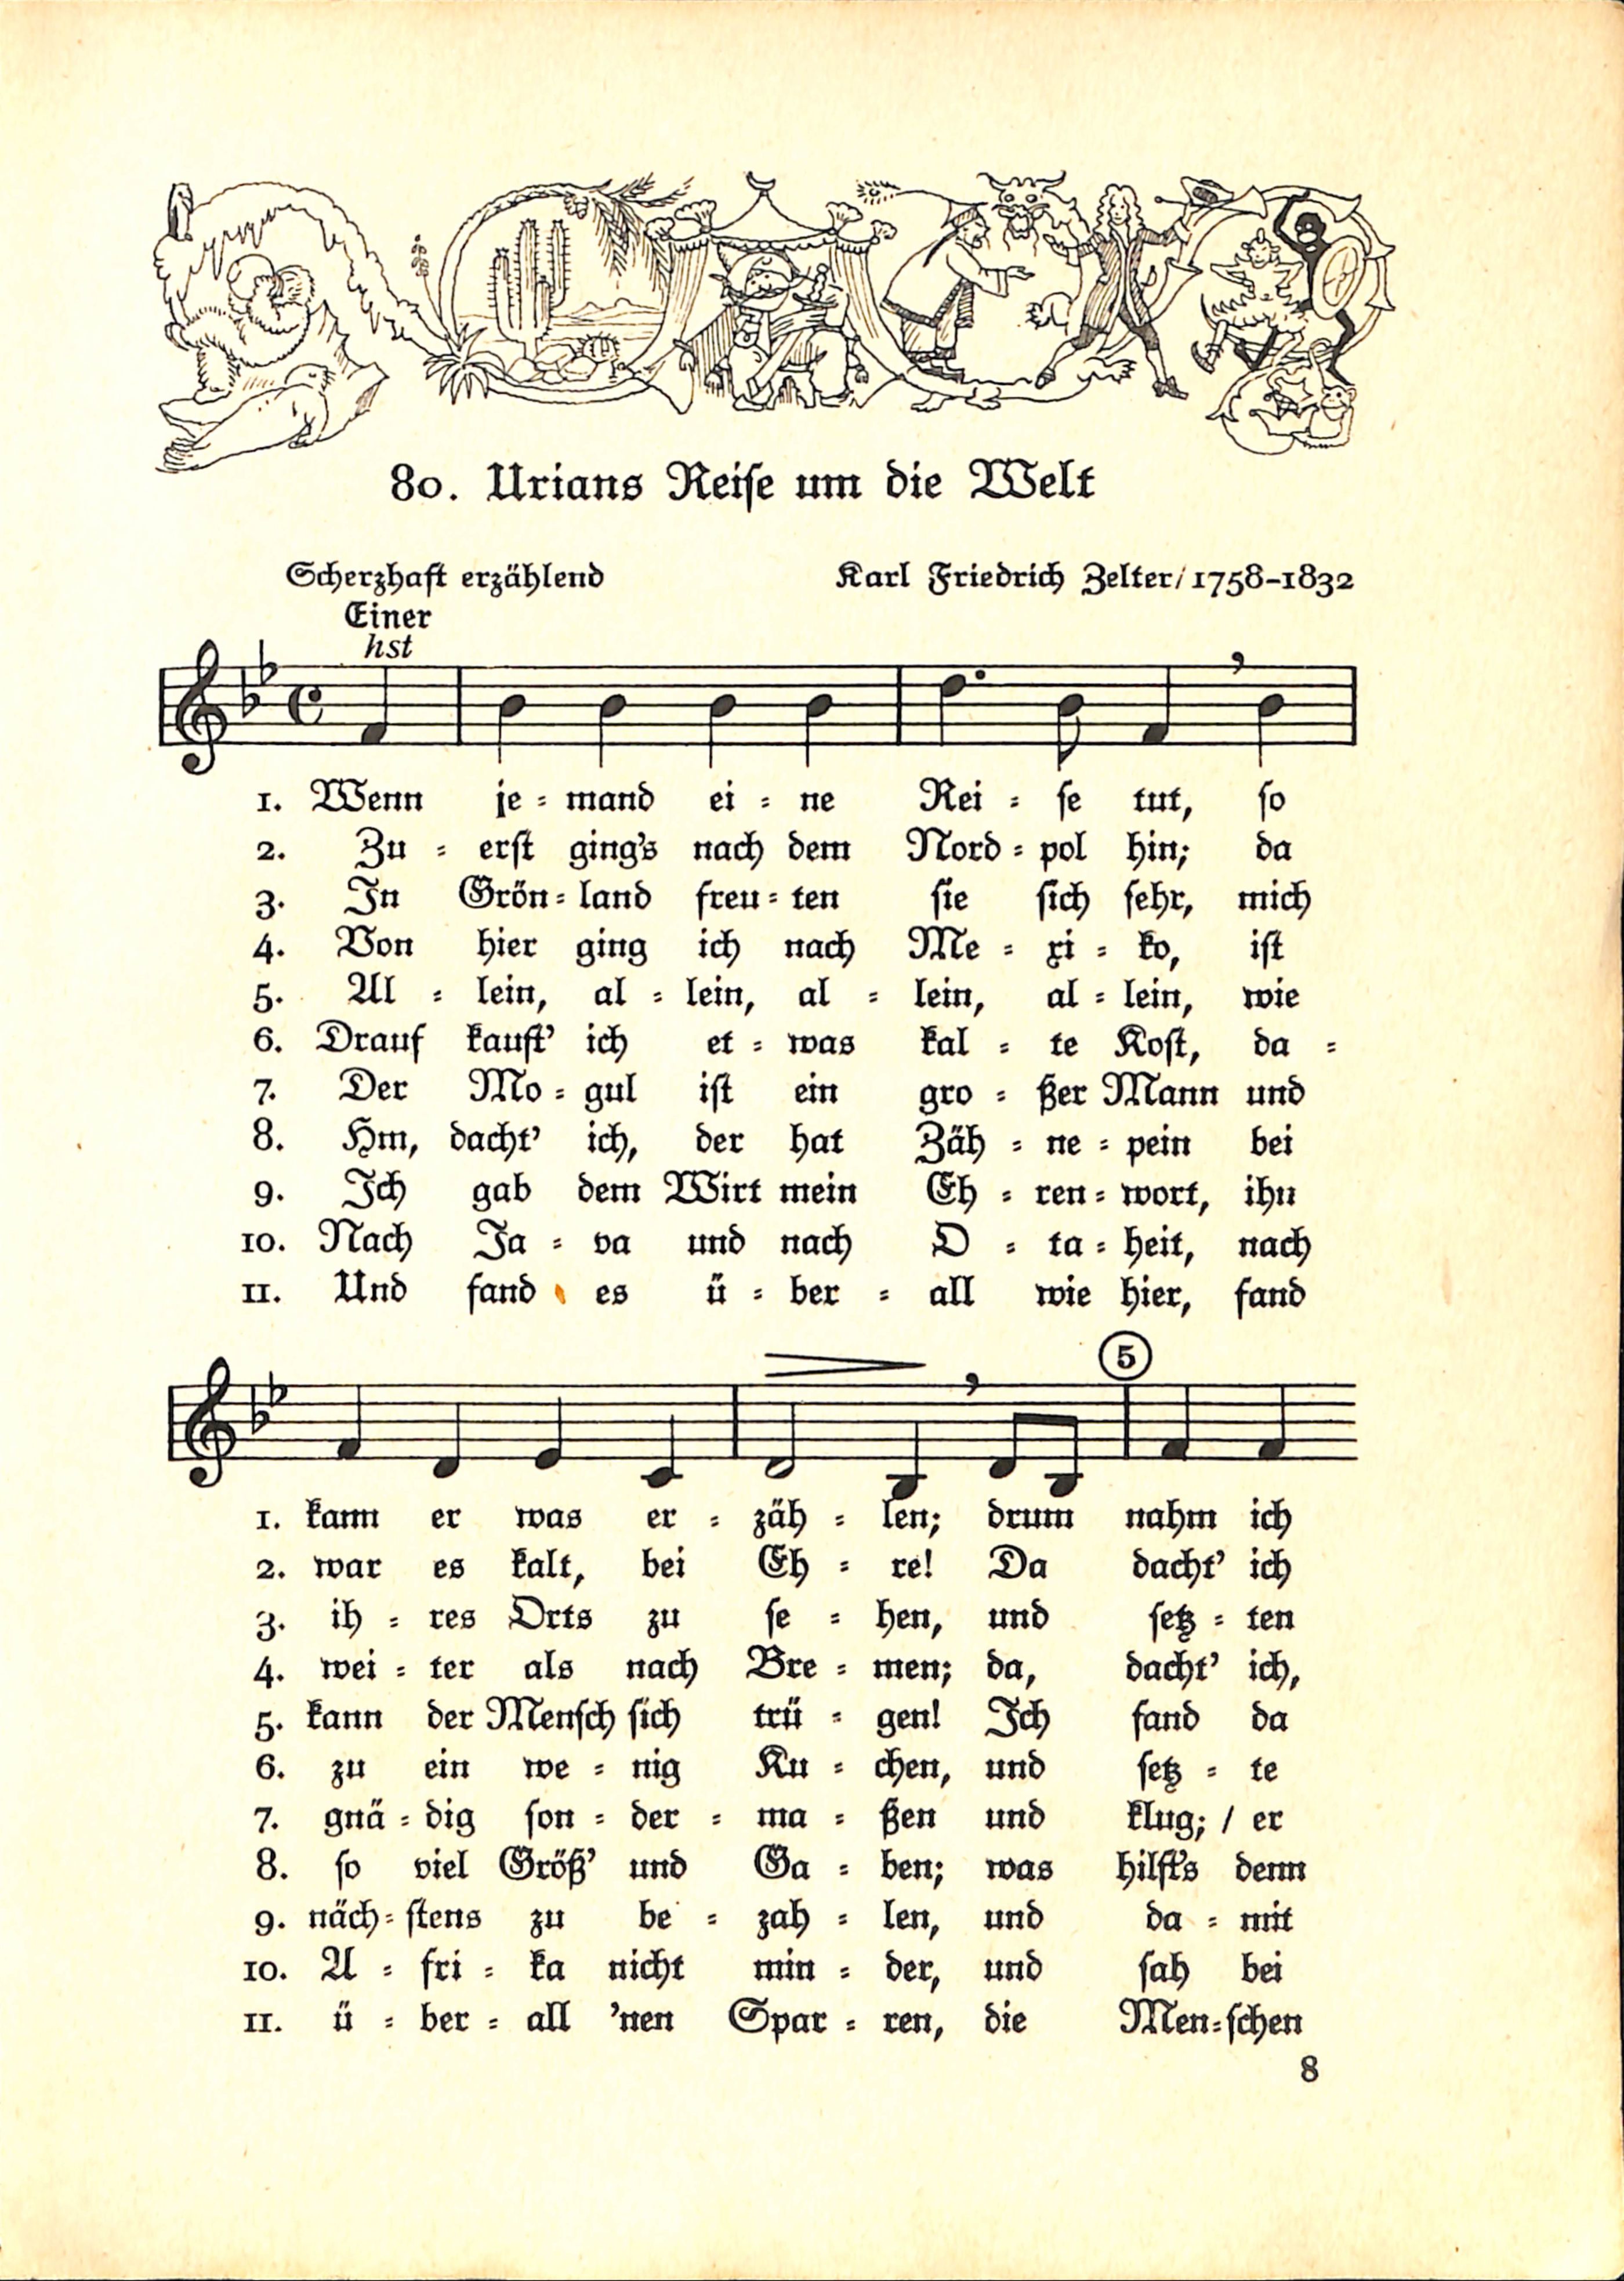 80. Urians Reiſe um die Welt
Scherzhaft erzählend Karl Friedrich Zelter/1758-1832
Einer
hst
1. Wenn je=mand ei=ne Rei=ſe tut, ſo
2. Zu=erſt ging's nach dem Nord=pol hin; da
3. In Grön=land freu=ten ſie ſich ſehr, mich
4. Von hier ging ich nach Me=xi=ko, iſt
5. Al=lein, al=lein, al=lein, al=lein, wie
6. Drauf kauft' ich et=was kal=te Koſt, da=
7. Der Mo=gul iſt ein gro=ßer Mann und
8. Hm, dacht' ich, der hat Zäh=ne=pein bei
9. Ich gab dem Wirt mein Eh=ren=wort, ihn
10. Nach Ja=va und nach O=ta=heit, nach
11. Und fand es ü=ber=all wie hier, fand
5
1. kann er was er=zäh=len; drum nahm ich
2. war es kalt, bei Eh=re! Da dacht' ich
3. ih=res Orts zu ſe=hen, und ſetz=ten
4. wei=ter als nach Bre=men; da, dacht' ich,
5. kann der Menſch ſich trü=gen! Ich fand da
6. zu ein we=nig Ku=chen, und ſetz=te
7. gnä=dig ſon=der=ma=ßen und klug; / er
8. ſo viel Größ' und Ga=ben; was hilft's denn
9. näch=ſtens zu be=zah=len, und da=mit
10. A=fri=ka nicht min=der, und ſah bei
11. ü=ber=all 'nen Spar=ren, die Men=ſchen
8